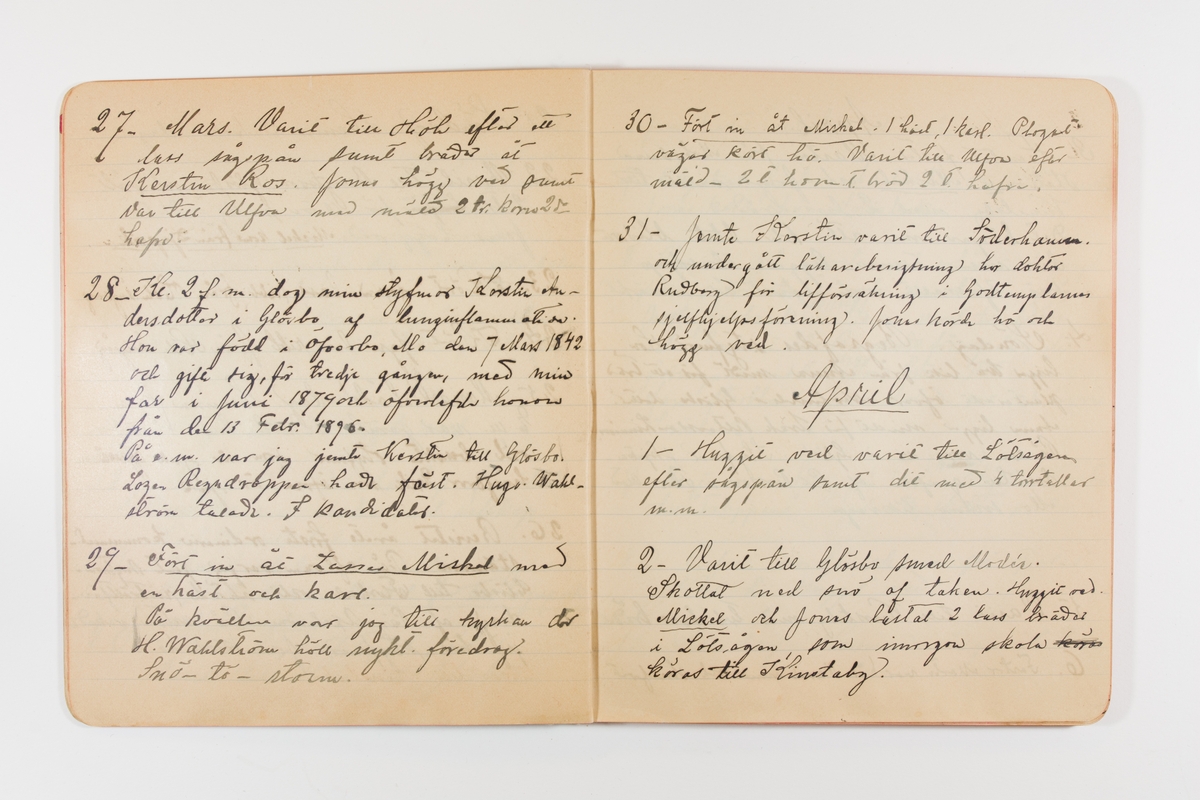 27- Mars. Varit till Höle efter ett
lass sågspån samt bräder åt
Kerstin Ros. Jonas högg ved samt
var till Ulfva med mäld 2 tr. korn 2 d
hafre.
28- Kl. 2 f. m. dog min styfmor Kerstin An-
dersdotter i Glösbo af lunginflammation.
Hon var född i Öfverbo, Mo den 7 Mars 1842
och gifte sig, för tredje gången, med min
far i Juni 1879 och öfverlefde honom
från den 13 Febr. 1896.
På e.m. var jag jemte Kerstin till Glösbo.
Logen Regndroppen hade fäst. Hugo Wahl-
ström talade. 7 kandidater.
29- Fört in åt Lasses Mickel med
en häst och karl.
På kvällen var jag till kyrkan der
H. Wahlström höll nykt. föredrag.
Snö-tö-storm.
30- Fört in åt Mickel. 1 häst, 1 karl. Plogat
vägar kört hö. Varit till Ulfva efter
mäld- 2 t korn 1 t bröd 2 t hafre.
31- Jemte Kerstin varit till Söderhamn.
och undergått läkarebesigtning hos doktor
Rudberg för lifförsäkring i Godtemplarnes
sjelfhjelpsförening. Jonas körde hö och
högg ved.
April
1- Huggit ved varit till Lötsågen
efter sågspån samt dit med 4 torrtallar
m.m.
2- Varit till Glösbo smed Modér.
Skottat ned snö af taken. Huggit ved.
Mickel och Jonas lastat 2 lass bräder
i Lötsågen, som imorgon skola köras
köras till Kinstaby.